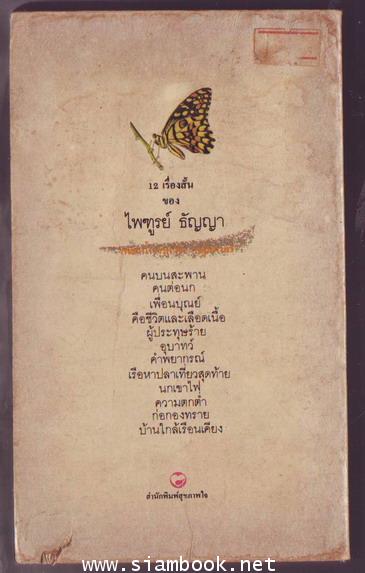 12 เรื่องสั้น
ของ
ไพฑูรย์ ธัญญา
คนบนสะพาน
คนต่อนก
เพื่อนบุณย์
คือชีวิตและเลือดเนื้อ
ผู้ประทุษร้าย
อุบาทว์
คำพยากรณ์
เรือหาปลาเที่ยวสุดท้าย
นกเขาไฟ
ความตกต่ำ
ก่อกองทราย
บ้านใกล้เรือนเคียง
สำนักพิมพ์สุขภาพใจ
www.siambook.net